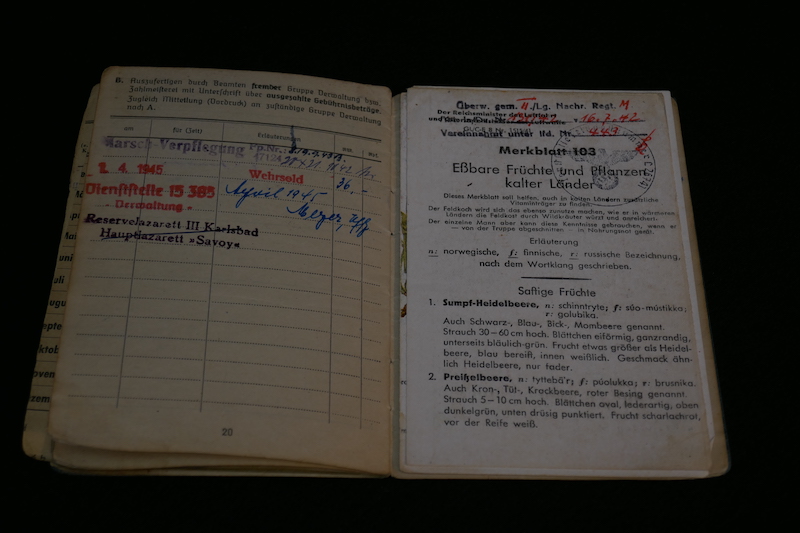 B. Auszufertigen durch Beamten fremder Gruppe Verwaltung bzw.
Zahlmeisterei mit Unterschrift über ausgezahlte Gebührnisbeträge.
Zugleich Mitteilung (Vordruck) an zuständige Gruppe Verwaltung
nach A.
am
für (Zeit)
Erläuterungen
Marsch-Verpflegung
4. 1945
Wehrsold
36,-
Dienststelle 15 365
Verwaltung
April 1945
Reservelazarett III Karlsbad
Hauptlazarett »Savoy«
20
Überw. gem. II./Lg. Nachr. Regt. M
Der Reichsminister der Luftfahrt
16.7.42
Vereinnahmt unter lfd. Nr. 449
Merkblatt 103
Eßbare Früchte und Pflanzen
kalter Länder
Dieses Merkblatt soll helfen, auch in kalten Ländern zusätzliche
Vitaminträger zu finden.
Der Feldkoch wird sich das ebenso zunutze machen, wie er in wärmeren
Ländern die Feldkost durch Wildkräuter würzt und anreichert.
Der einzelne Mann aber kann diese Kenntnisse gebrauchen, wenn er
— von der Truppe abgeschnitten — in Nahrungsnot gerät.
Erläuterung
n: norwegische, f: finnische, r: russische Bezeichnung,
nach dem Wortklang geschrieben.
Saftige Früchte
1. Sumpf-Heidelbeere, n: schinntryte; f: súo-mústikka;
r: golubika.
Auch Schwarz-, Blau-, Bick-, Mombeere genannt.
Strauch 30–60 cm hoch. Blättchen eiförmig, ganzrandig,
unterseits bläulich-grün. Frucht etwas größer als Heidel-
beere, blau bereift, innen weißlich. Geschmack ähn-
lich Heidelbeere, nur fader.
2. Preißelbeere, n: tyttebä'r; f: púolukka; r: brusnika.
Auch Kron-, Tüt-, Krackbeere, roter Besing genannt.
Strauch 5–10 cm hoch. Blättchen oval, lederartig, oben
dunkelgrün, unten drüsig punktiert. Frucht scharlachrot,
vor der Reife weiß.